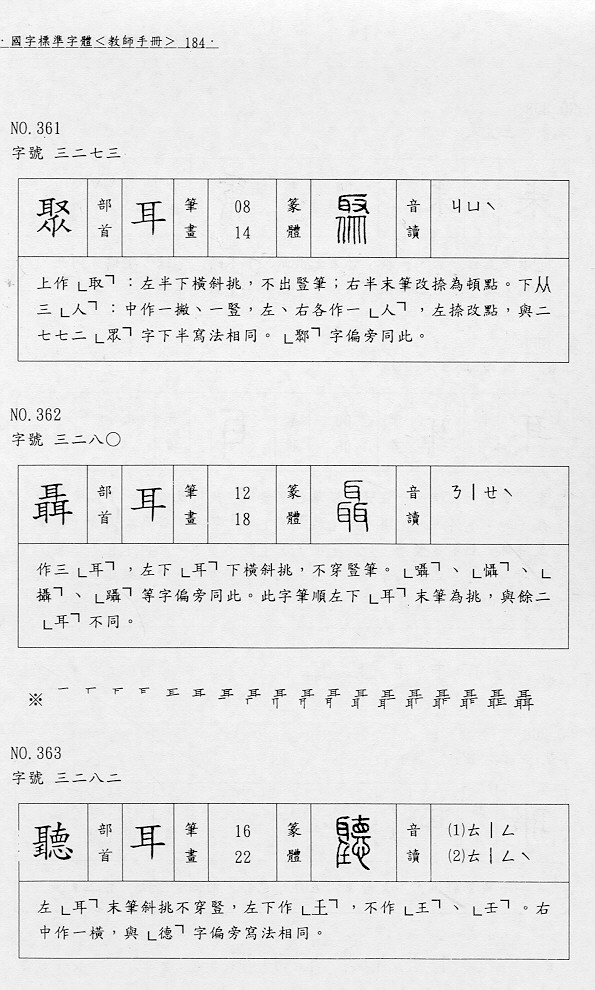 ·國字標準字體<教師手冊> 184·
NO.361
字號 三二七三
聚 部首 耳 筆畫 08 14 篆體 音讀 ㄐㄩˋ
上作「取」：左半下橫斜挑，不出豎筆；右半末筆改捺為頓點。下㐺
三「人」：中作一撇、一豎，左、右各作一「人」，左捺改點，與二
七七二「眾」字下半寫法相同。「鄹」字偏旁同此。
NO.362
字號 三二八〇
聶 部首 耳 筆畫 12 18 篆體 音讀 ㄋㄧㄝˋ
作三「耳」，左下「耳」下橫斜挑，不穿豎筆。「囁」、「懾」、「
攝」、「躡」等字偏旁同此。此字筆順左下「耳」末筆為挑，與餘二
「耳」不同。
※
NO.363
字號 三二八二
聽 部首 耳 筆畫 16 22 篆體 音讀 ⑴ㄊㄧㄥ ⑵ㄊㄧㄥˋ
左「耳」末筆斜挑不穿豎，左下作「𡈼」，不作「王」、「壬」。右
中作一橫，與「德」字偏旁寫法相同。